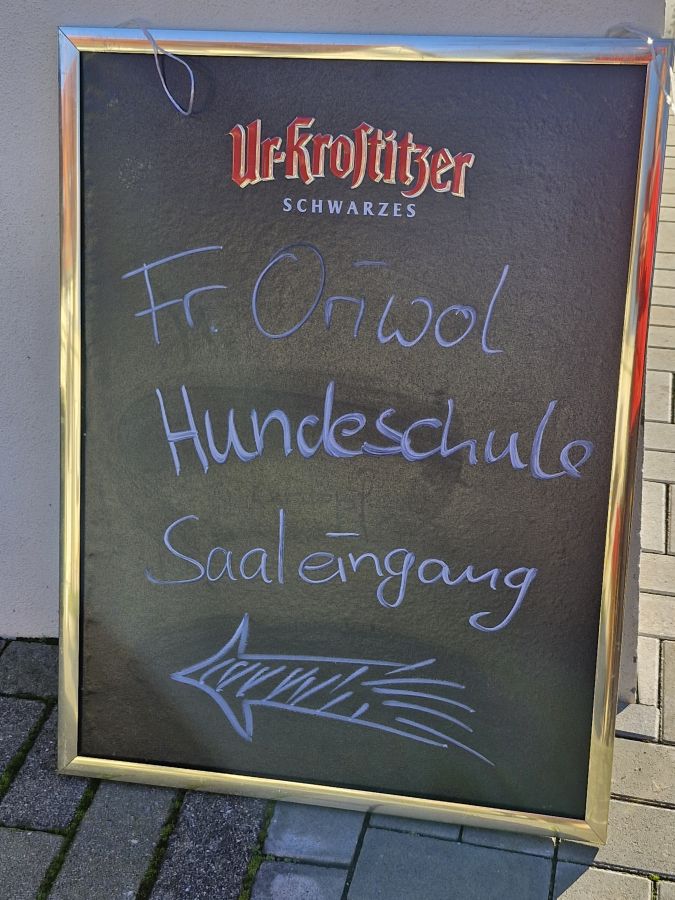 Ur-Krostitzer
SCHWARZES
Fr. Oriwol
Hundeschule
Saaleingang